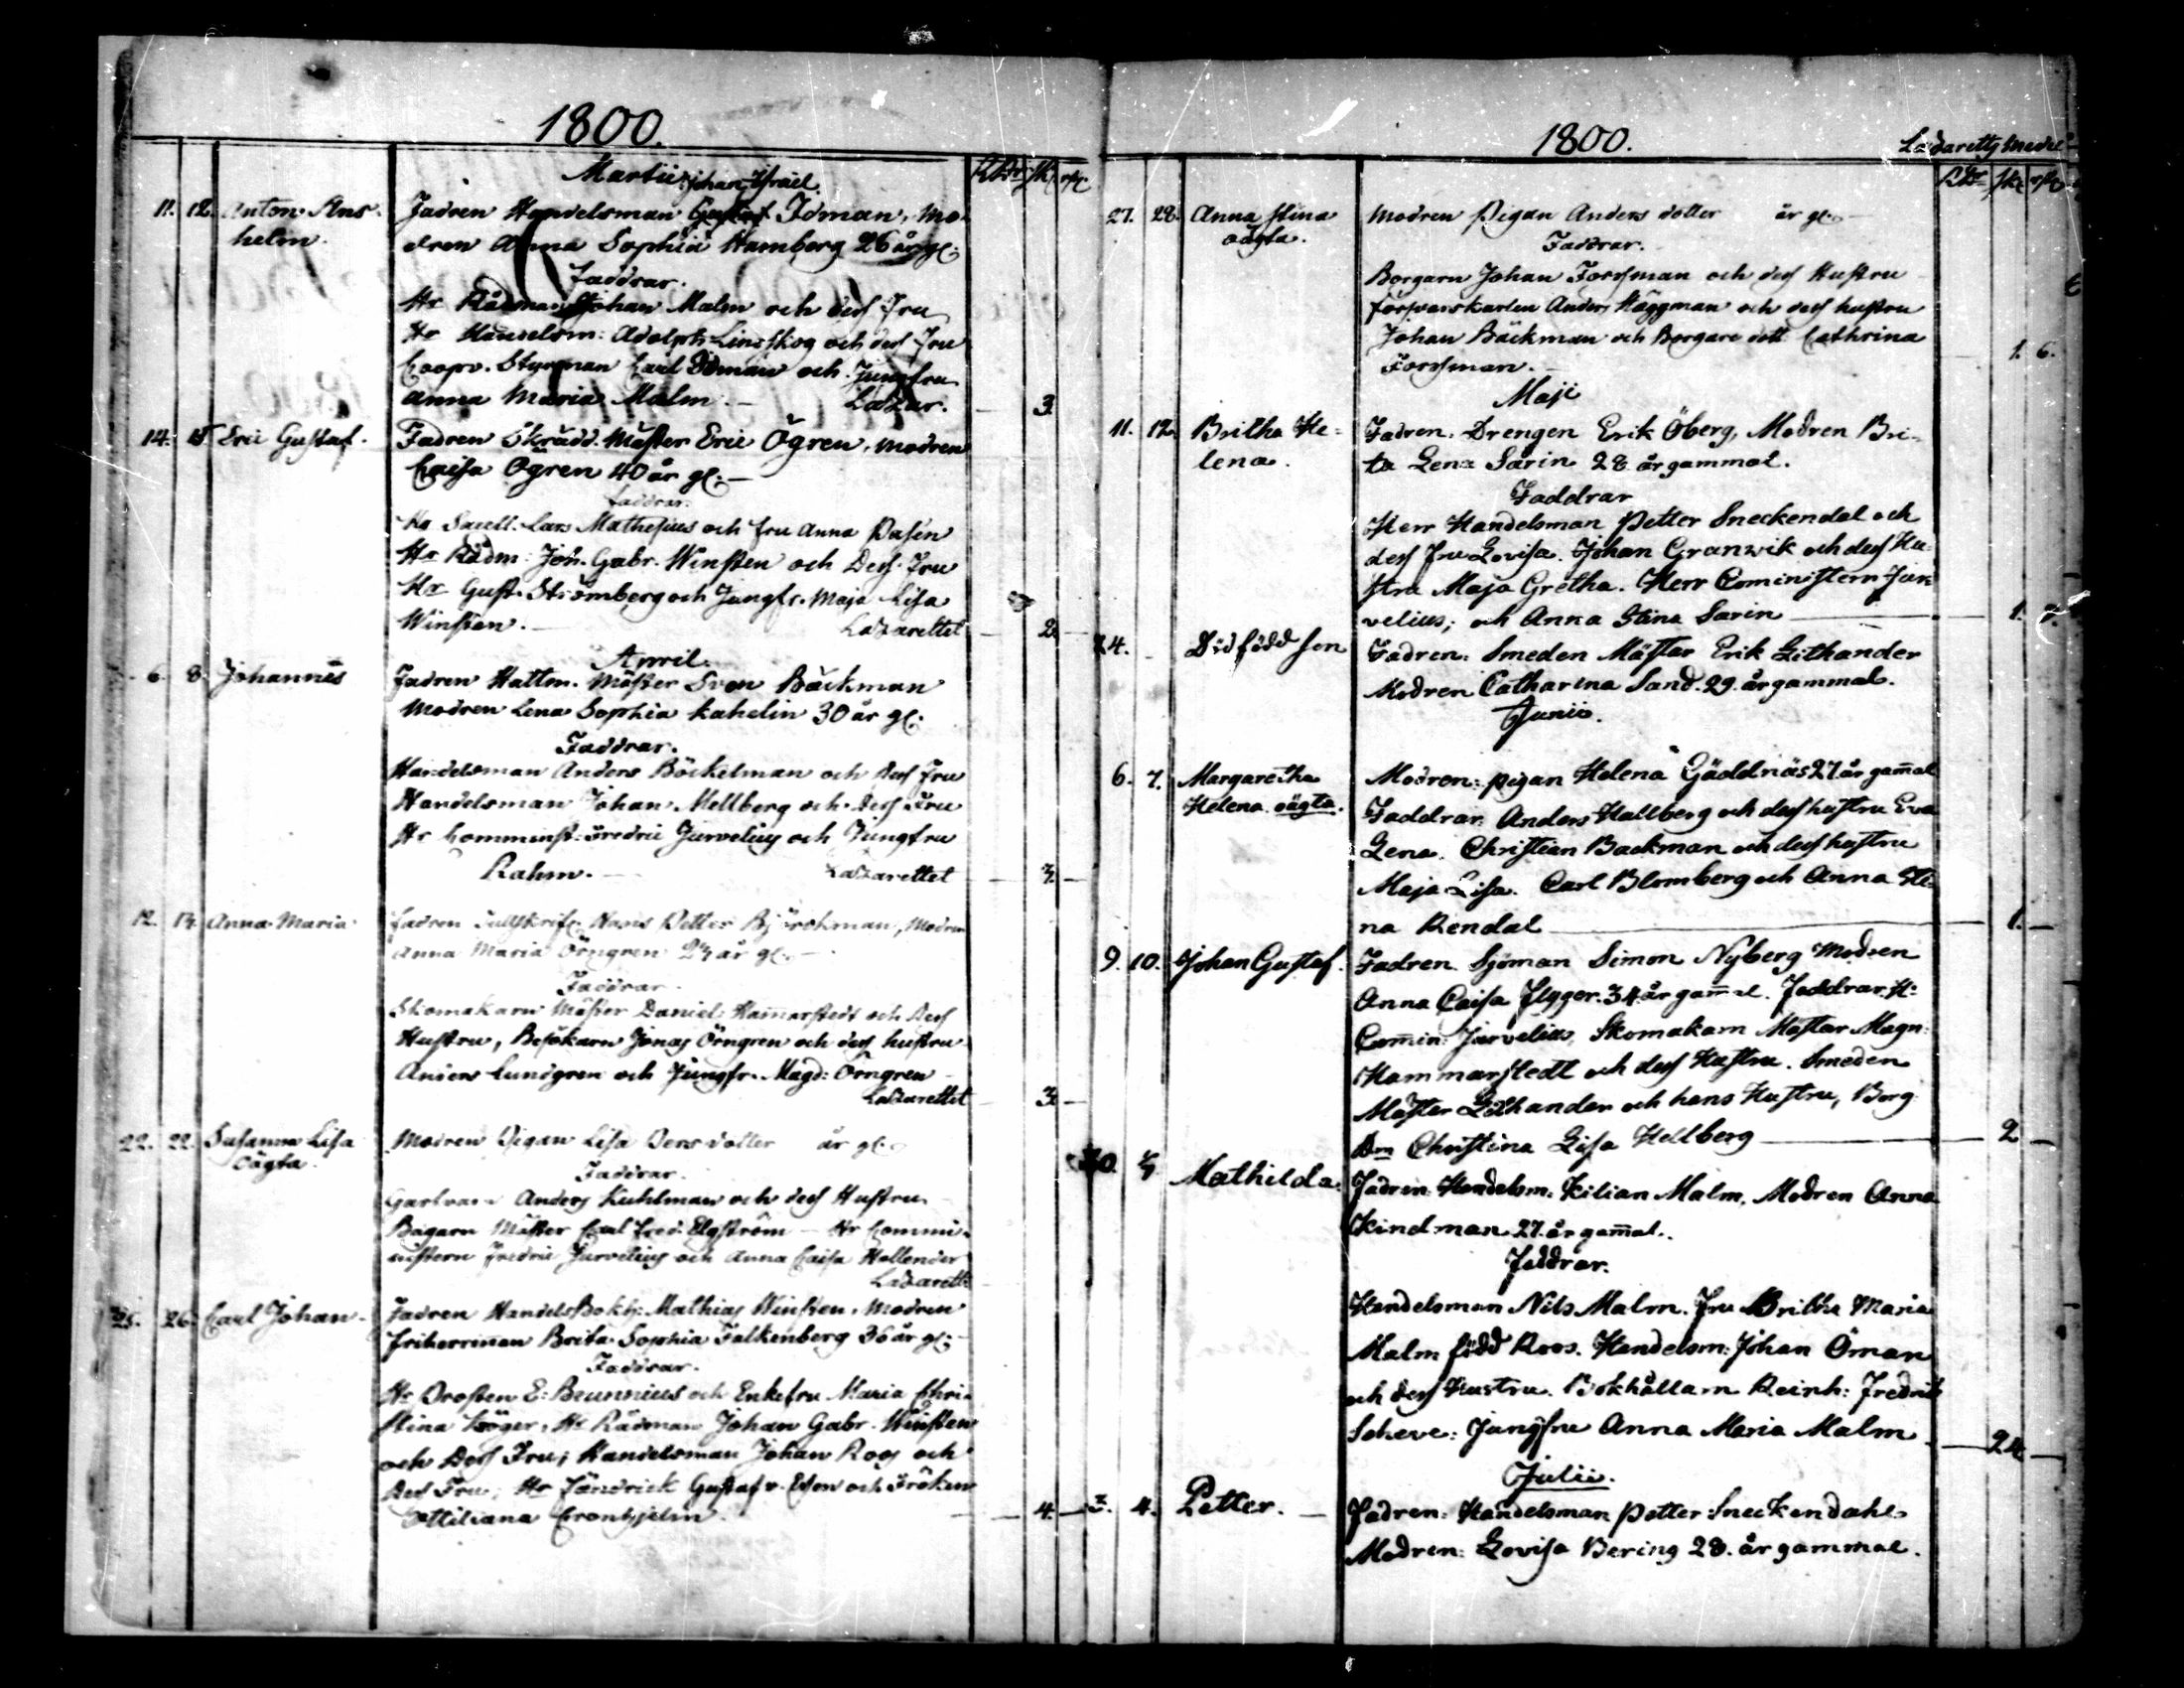 1800.
Martii Johan Israel
RDr sk. rst.
11. 12. Anton Ans- Fadren Handelsman Gustaf Idman, Mo-
helm. dren Anna Sophia Hamberg 26 år gl:
Faddrar.
Hr Rådman Johan Malm och dess Fru
Hr Handelsm: Adolph Lindskog och dess Fru
Coopv. Styrman Carl Idman och Jungfru
Anna Maria Malm. — Lazar. — 3.
14. 15. Eric Gustaf. Fadren Skrädd. Mäster Eric Ögren, modren
Caisa Ögren 40 år gl: —
Faddrar.
Hr Sacell. Lars Mathesius och Fru Anna Pasén
Hr Rådm: Joh. Gabr. Winsten och Dess Fru
Hr Gust. Strömberg och Jungfr. Maja Lisa
Winsten. — Lazarettet — 2.
April.
6. 8. Johannes Fadren Hattm. Mäster Sven Bäckman
Modren Lena Sophia Kahelin 30 år gl:
Faddrar.
Handelsman Anders Böckelman och Dess Fru
Handelsman Johan Mellberg och Dess Fru
Hr Comminist: Fredric Jurvelius och Jungfru
Rahm. — Lazarettet — 3. —
12. 13. Anna Maria Fadren Tullskrifv. Hans Petter Björckman, Modren
Anna Maria Örngren 24 år gl. —
Faddrar.
Skomakarn Mäster Daniel Hammarstedt och Dess
Hustru, Besökarn Jonas Örngren och dess hustru
Anders Lundgren och Jungfr. Magd: Örngren
Lazarettet — 3. —
22. 22. Susanna Lisa Modren Pigan Lisa Persdotter år gl.
oägta. Faddrar.
Garfvarn Anders Kuhlman och dess Hustru
Bagarn Mäster Carl Fred. Elgström — Hr Commi-
nistern Fredric Jurvelius och Anna Caisa Hollender
Lazarette
25. 26. Carl Johan Fadren HandelsBokh: Mathias Winsten, Modren
Friherrinnan Brita Sophia Falkenberg 36 år gl: —
Faddrar.
Hr Prosten E: Brunnius och Enkefru Maria Chri-
stina Höger, Hr Rådman Johan Gabr. Winsten
och Dess Fru; Handelsman Johan Roos och
Dess Fru; Hr Fändrick Gustaf v. Essen och Fröken
Ottiliana Cronhjelm. — 4. —
1800. Lazaretts Medel
RDr sk rst
27. 28. Anna Stina Modren Pigan Anders dotter år gl. —
oägta. Faddrar.
Borgarn Johan Forssman och dess Hustru
försvarskarlen Anders Häggman och dess hustru
Johan Bäckman och Borgare dott Cathrina
Forssman. — 1. 6.
Maji
11. 12. Britha He- Fadren. Drengen Erik Öberg, Modren Bri-
lena. ta Lena Sarin 28 år gammal.
Faddrar
Herr Handelsman Petter Sneckendal och
dess fru Lovisa. Johan Granvik och dess Hu-
stru Maja Gretha. Herr Cominístern Jur-
velius; och Anna Stina Sarin — 1.
24. — Dödfödd son Fadren: Smeden Mäster Erik Lithander
Modren Catharina Sand. 29. år gammal.
Junii.
6. 7. Margaretha Modren: pigan Helena Gäddnäs 27. år gamal
Helena oägta. Faddrar. Anders Hallberg och dess hustru Eva
Lena. Christian Backman och dess hustru
Maja Lisa. Carl Blomberg och Anna Sti-
na Rendal — 1. —
9. 10. Johan Gustaf. Fadren. Sjöman Simon Nyberg Modren
Anna Caisa Flyger. 34 år gamal. Faddrar. Hr
Comin: Jurvelius, Skomakarn Mäster Magn:
Hammarstedt och dess Hustru. Smeden
Mäster Lithander och hans Hustru, Borg
Dm Christina Lisa Hellberg — 2 —
30. 1/7 Mathilda. Fadren: Handelsm: Kilian Malm. Modren Anna
Kindman 27. år gamal.
Faddrar.
Handelsman Nils Malm. Fru Britha Maria
Malm född Roos. Handelsm: Johan Öman
och dess Hustru. Bokhållarn Reinh: Fredrik
Scheve: Jungfru Anna Maria Malm — 24 —
Julii.
3. 4. Petter. — Fadren: Handelsman Petter Sneckendahl
Modren: Lovisa Bering 28. år gammal.